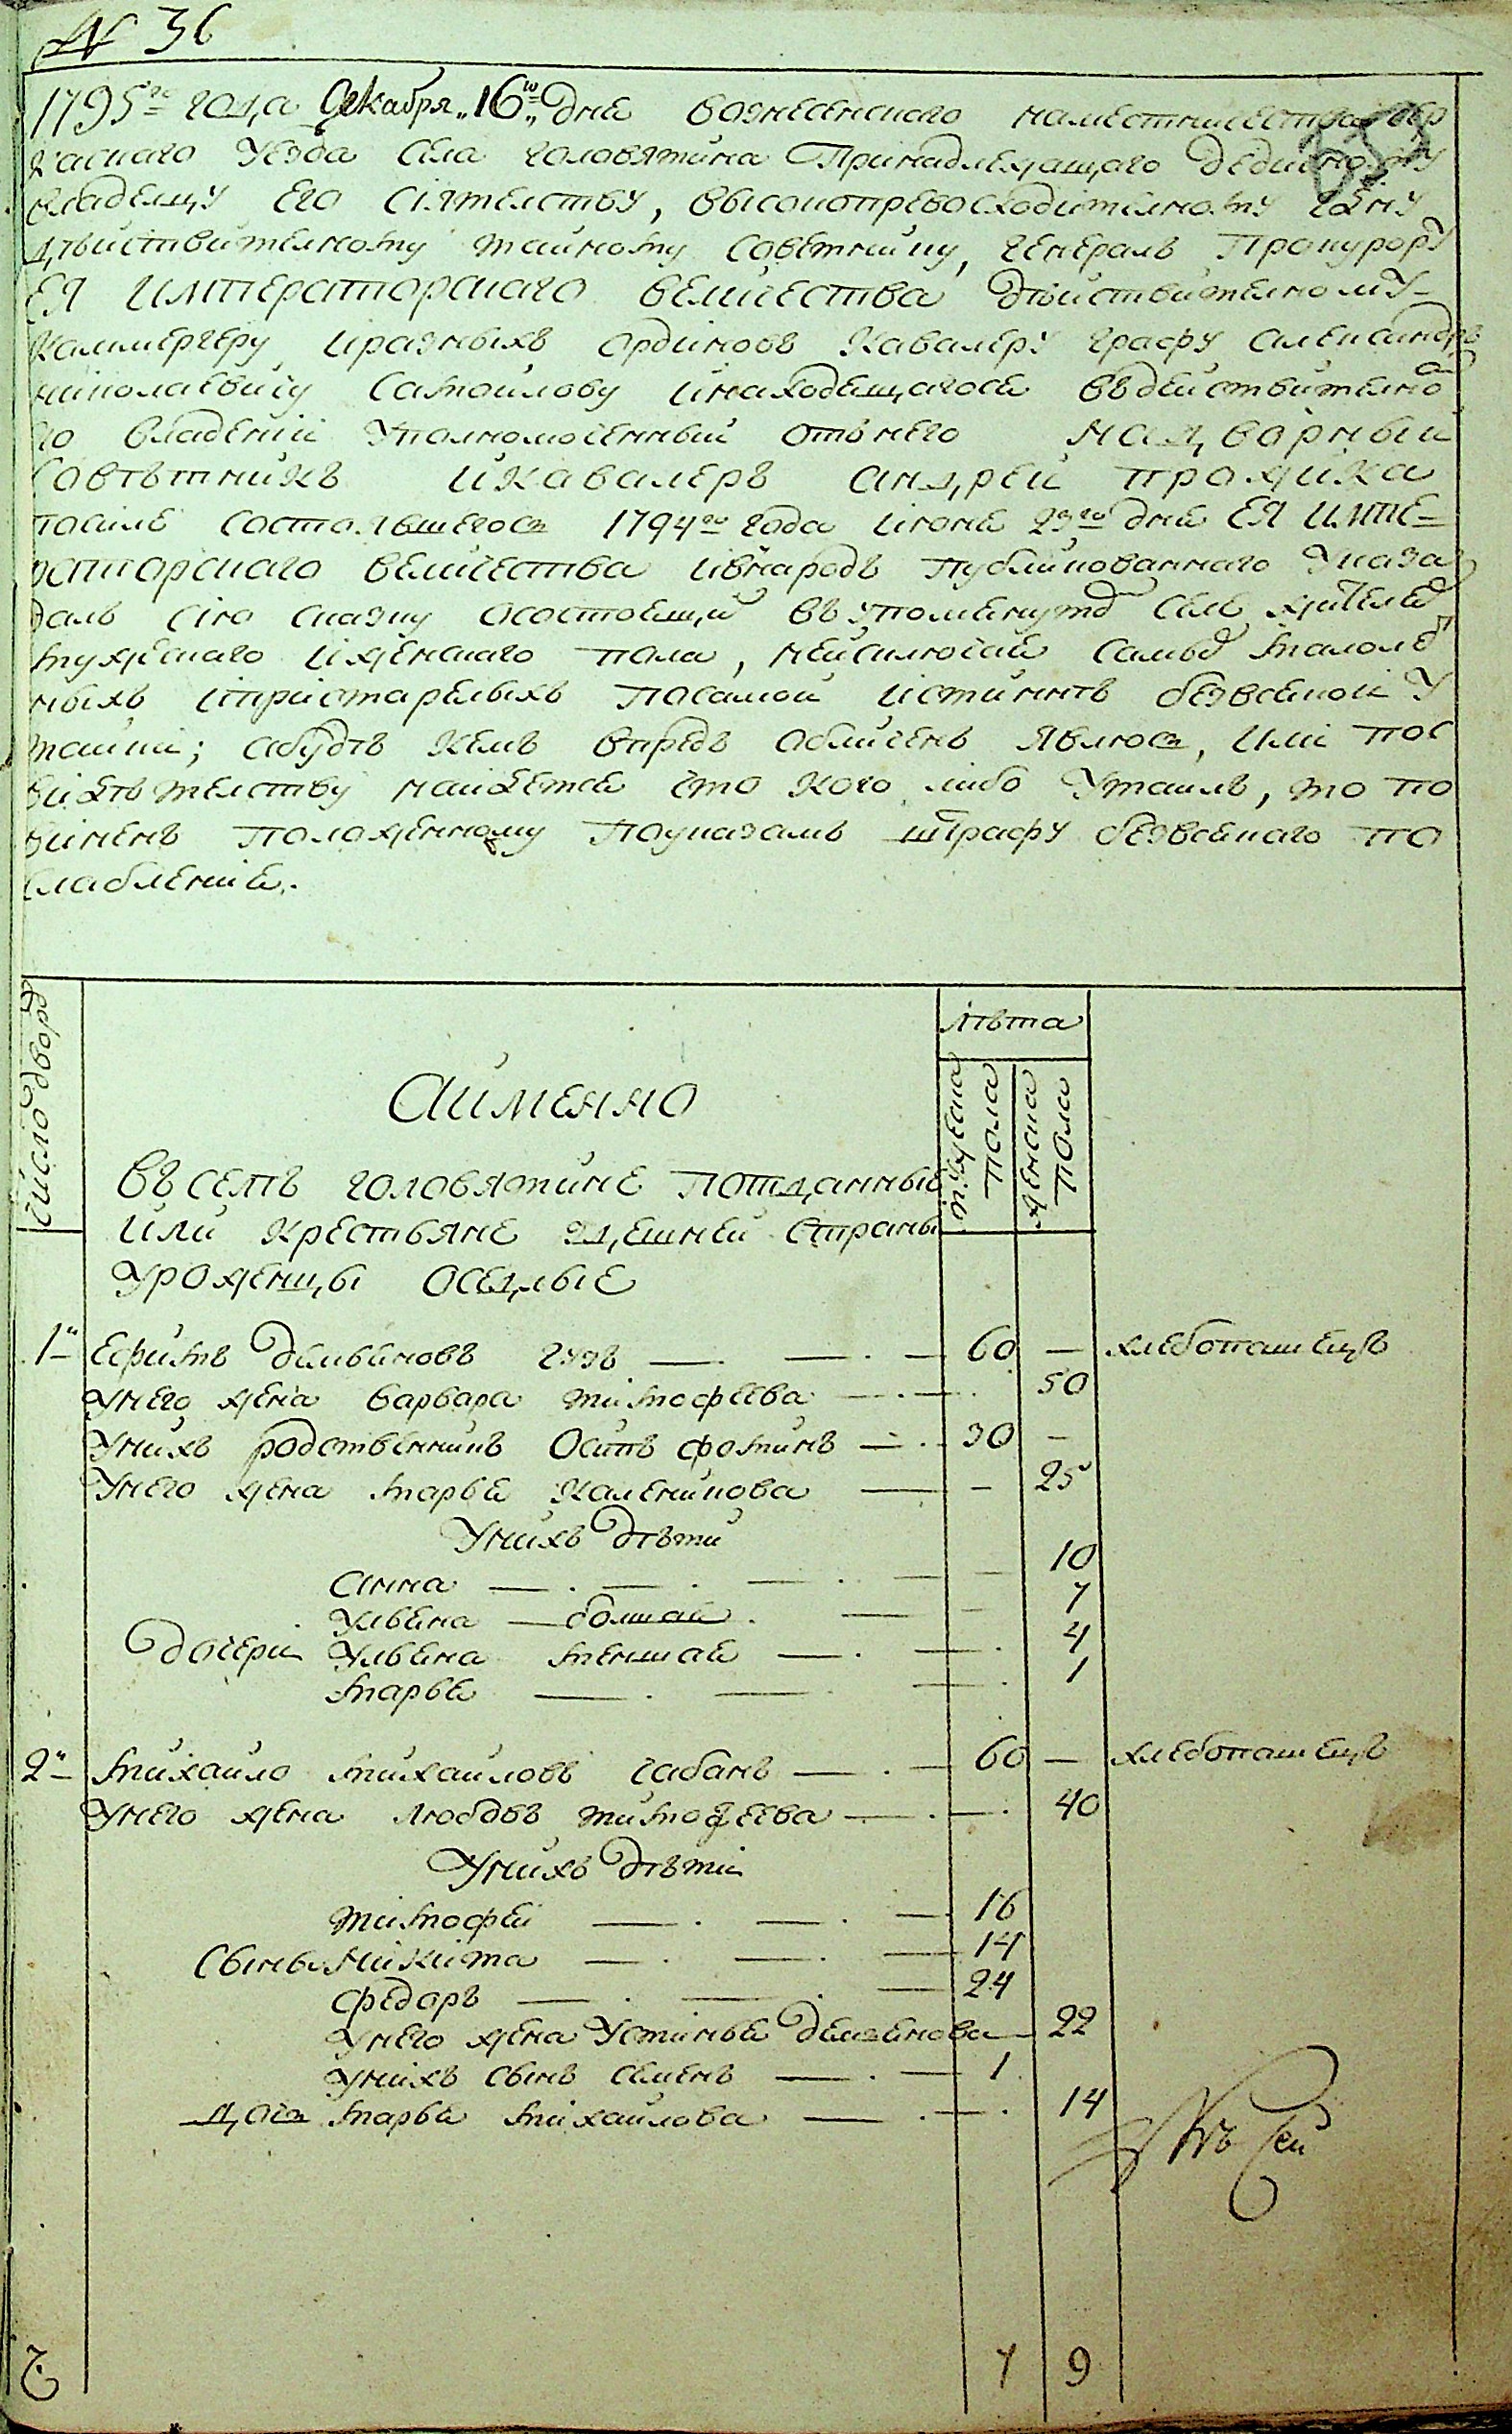 № 36
1795го года Декабря „16го„ дне вознесенскаго наместничества чер
каскаго уезда села головятина Принадлежащаго дедичному
владелцу его сіятелству, высокопревосходителному гдну
дѣйствителному тайному советнику, генералъ Прокурору
ЕЯ ИМПЕРАТОРСКАГО величества дѣйствителному
каммергеру иразныхъ ординовъ кавалеру графу александръ
николаевичу самойлову инаходещагосе въдействително
го владеніи уполномоченный отънего надворный
совѣтникъ икавалеръ андрей пройка
посиле состоявшегося 1794го года июне 23го дне ЕЯ ИМПЕ=
раторскаго величества ивнародъ публикованнаго указа
далъ сію сказку осостоещий въупоменуто селе жителе
мужескаго иженскаго пола, неисключае самых малоле
ныхъ ипристарелыхъ посамой истиннѣ безвсекой у
тайки; абудѣ кемъ впредь обличенъ явлюся, или пос
видѣтелству найдетсе что кого либо утаилъ, то по
виненъ положенному поуказамъ штрафу безвсекаго по
слабление.
Число дворо
Аименно
лѣта
мужеска пола
женска пола
Въ селѣ головятине подданные
или крестьяне здешней страны
уроженцы оседлые
1й Ефимъ демьеновъ гузъ — — — 60 — хлебопашецъ
унего жена варвара тимофеева — — 50
унихъ родственникъ Осипъ фоминъ — 30 —
унего жена марье каленикова — — 25
Унихъ дѣти
анна — — — — — 10
ульена — болшае — — 7
дочери ульена меншае — — 4
марье — — — 1
2й михайло михайловъ чабанъ — — 60 — хлебопашецъ
унего жена любовъ тимофеева — — 40
Унихъ дѣти
тимофей — — — 16
сыны никита — — — 14
федоръ — — — 24
унего жена устинье демьенова — 22
унихъ сынъ семенъ — — 1
дочь марье михайлова — — 14
Къ сей
7 9